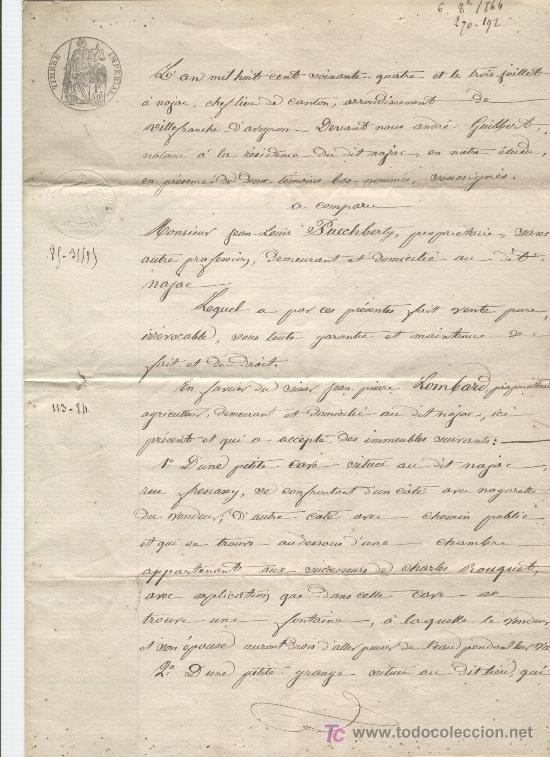 6 8bre 1864
270-192
TIMBRE IMPERIAL
1F
50c
L'an mil huit cent soixante-quatre et le trois juillet
à najac, chef lieu de canton, arrondissement de
Villefranche d'aveyron - Devant nous andré Guilbert,
notaire à la résidence du dit najac, en notre étude,
en présence de deux témoins bas-nommés, soussignés.
a comparu
Monsieur Jean-Louis Puechberty, propriétaire, sans
autre profession, demeurant et domicilié au dit
najac.
Lequel a par ces présentes fait vente pure,
irrévocable, sous toute garantie et maintenue de
fait et de droit.
En faveur du sieur Jean pierre Lombard propriétaire
agriculteur, demeurant et domicilié au dit najac, ici
présent et qui a accepté, des immeubles suivants:
1o D'une petite cave située au dit najac,
rue, se confrontant d'un côté avec
du vendeur, d'autre coté avec chemin public
et qui se trouve au dessous d'une chambre
appartenant aux successeurs de Charles Bouquet,
avec explication que dans cette cave se
trouve une fontaine, à laquelle le vendeur
et son épouse auront droit d'aller puiser de l'eau pendant leur vie
2o D'une petite grange située au dit lieu, qui
113-84
TC www.todocoleccion.net